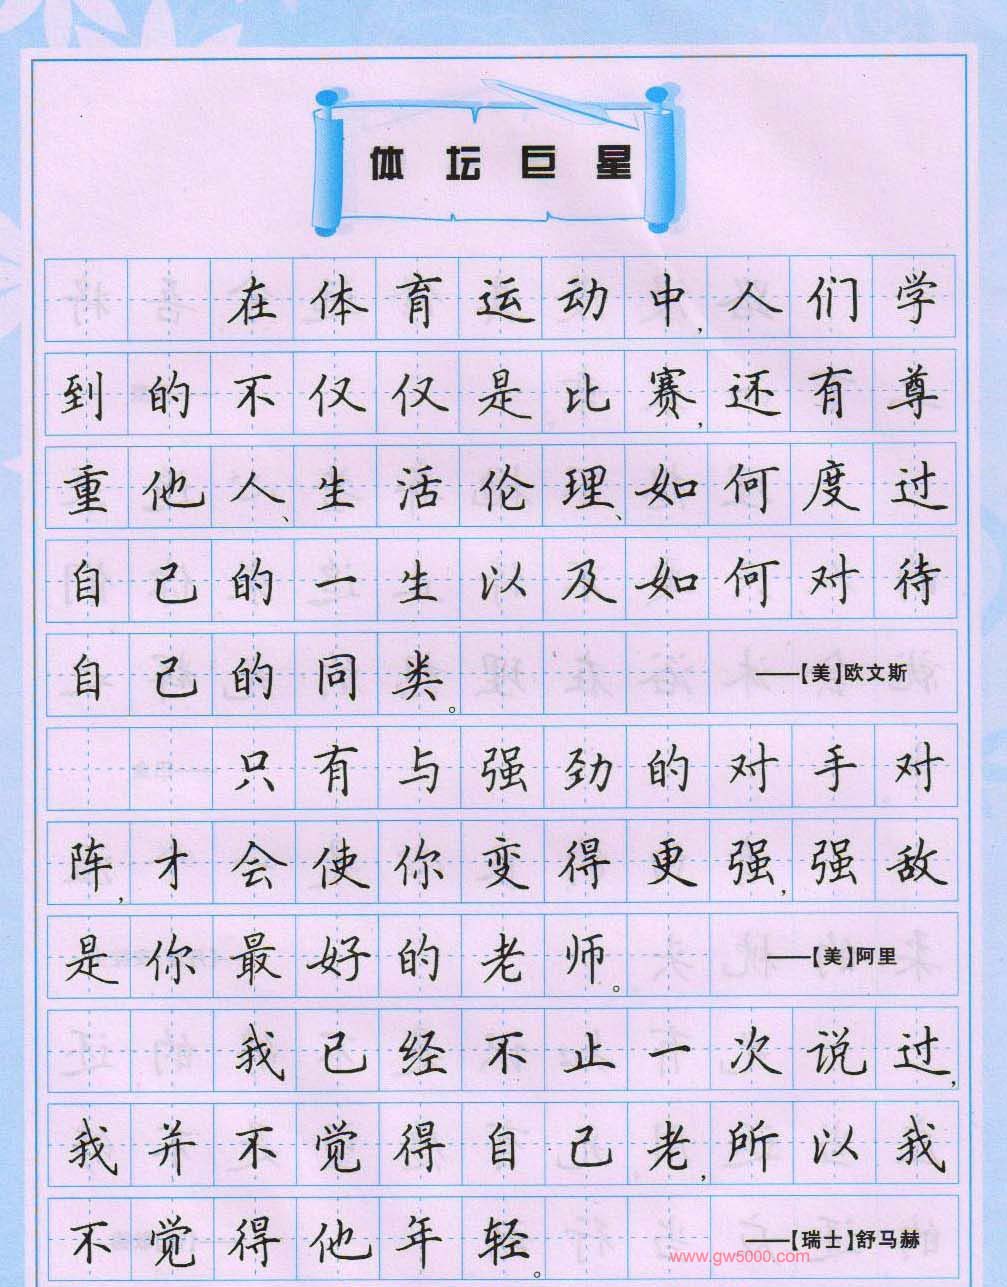 体坛巨星
在体育运动中,人们学
到的不仅仅是比赛,还有尊
重他人、生活伦理、如何度过
自己的一生以及如何对待
自己的同类。——【美】欧文斯
只有与强劲的对手对
阵,才会使你变得更强,强敌
是你最好的老师。——【美】阿里
我已经不止一次说过,
我并不觉得自己老,所以我
不觉得他年轻。——【瑞士】舒马赫
www.gw5000.com